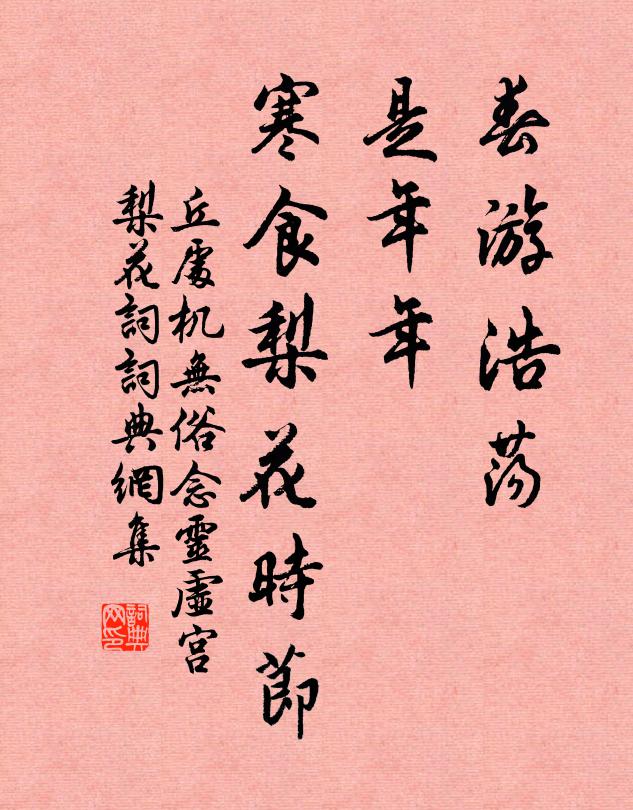 春游浩荡
是年年
寒食梨花時節
丘處机無俗念靈虛宫
梨花詞詞典網集
詞典网印